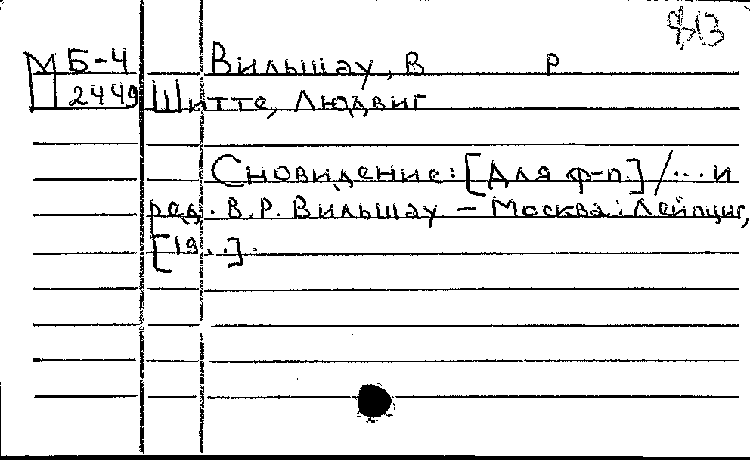 813
М Б-4 Вильшау, В Р
2449 Шитте, Людвиг
Сновидение: [Для ф-п.] /... и
ред. В.Р. Вильшау - Москва: Лейпциг,
[19..].